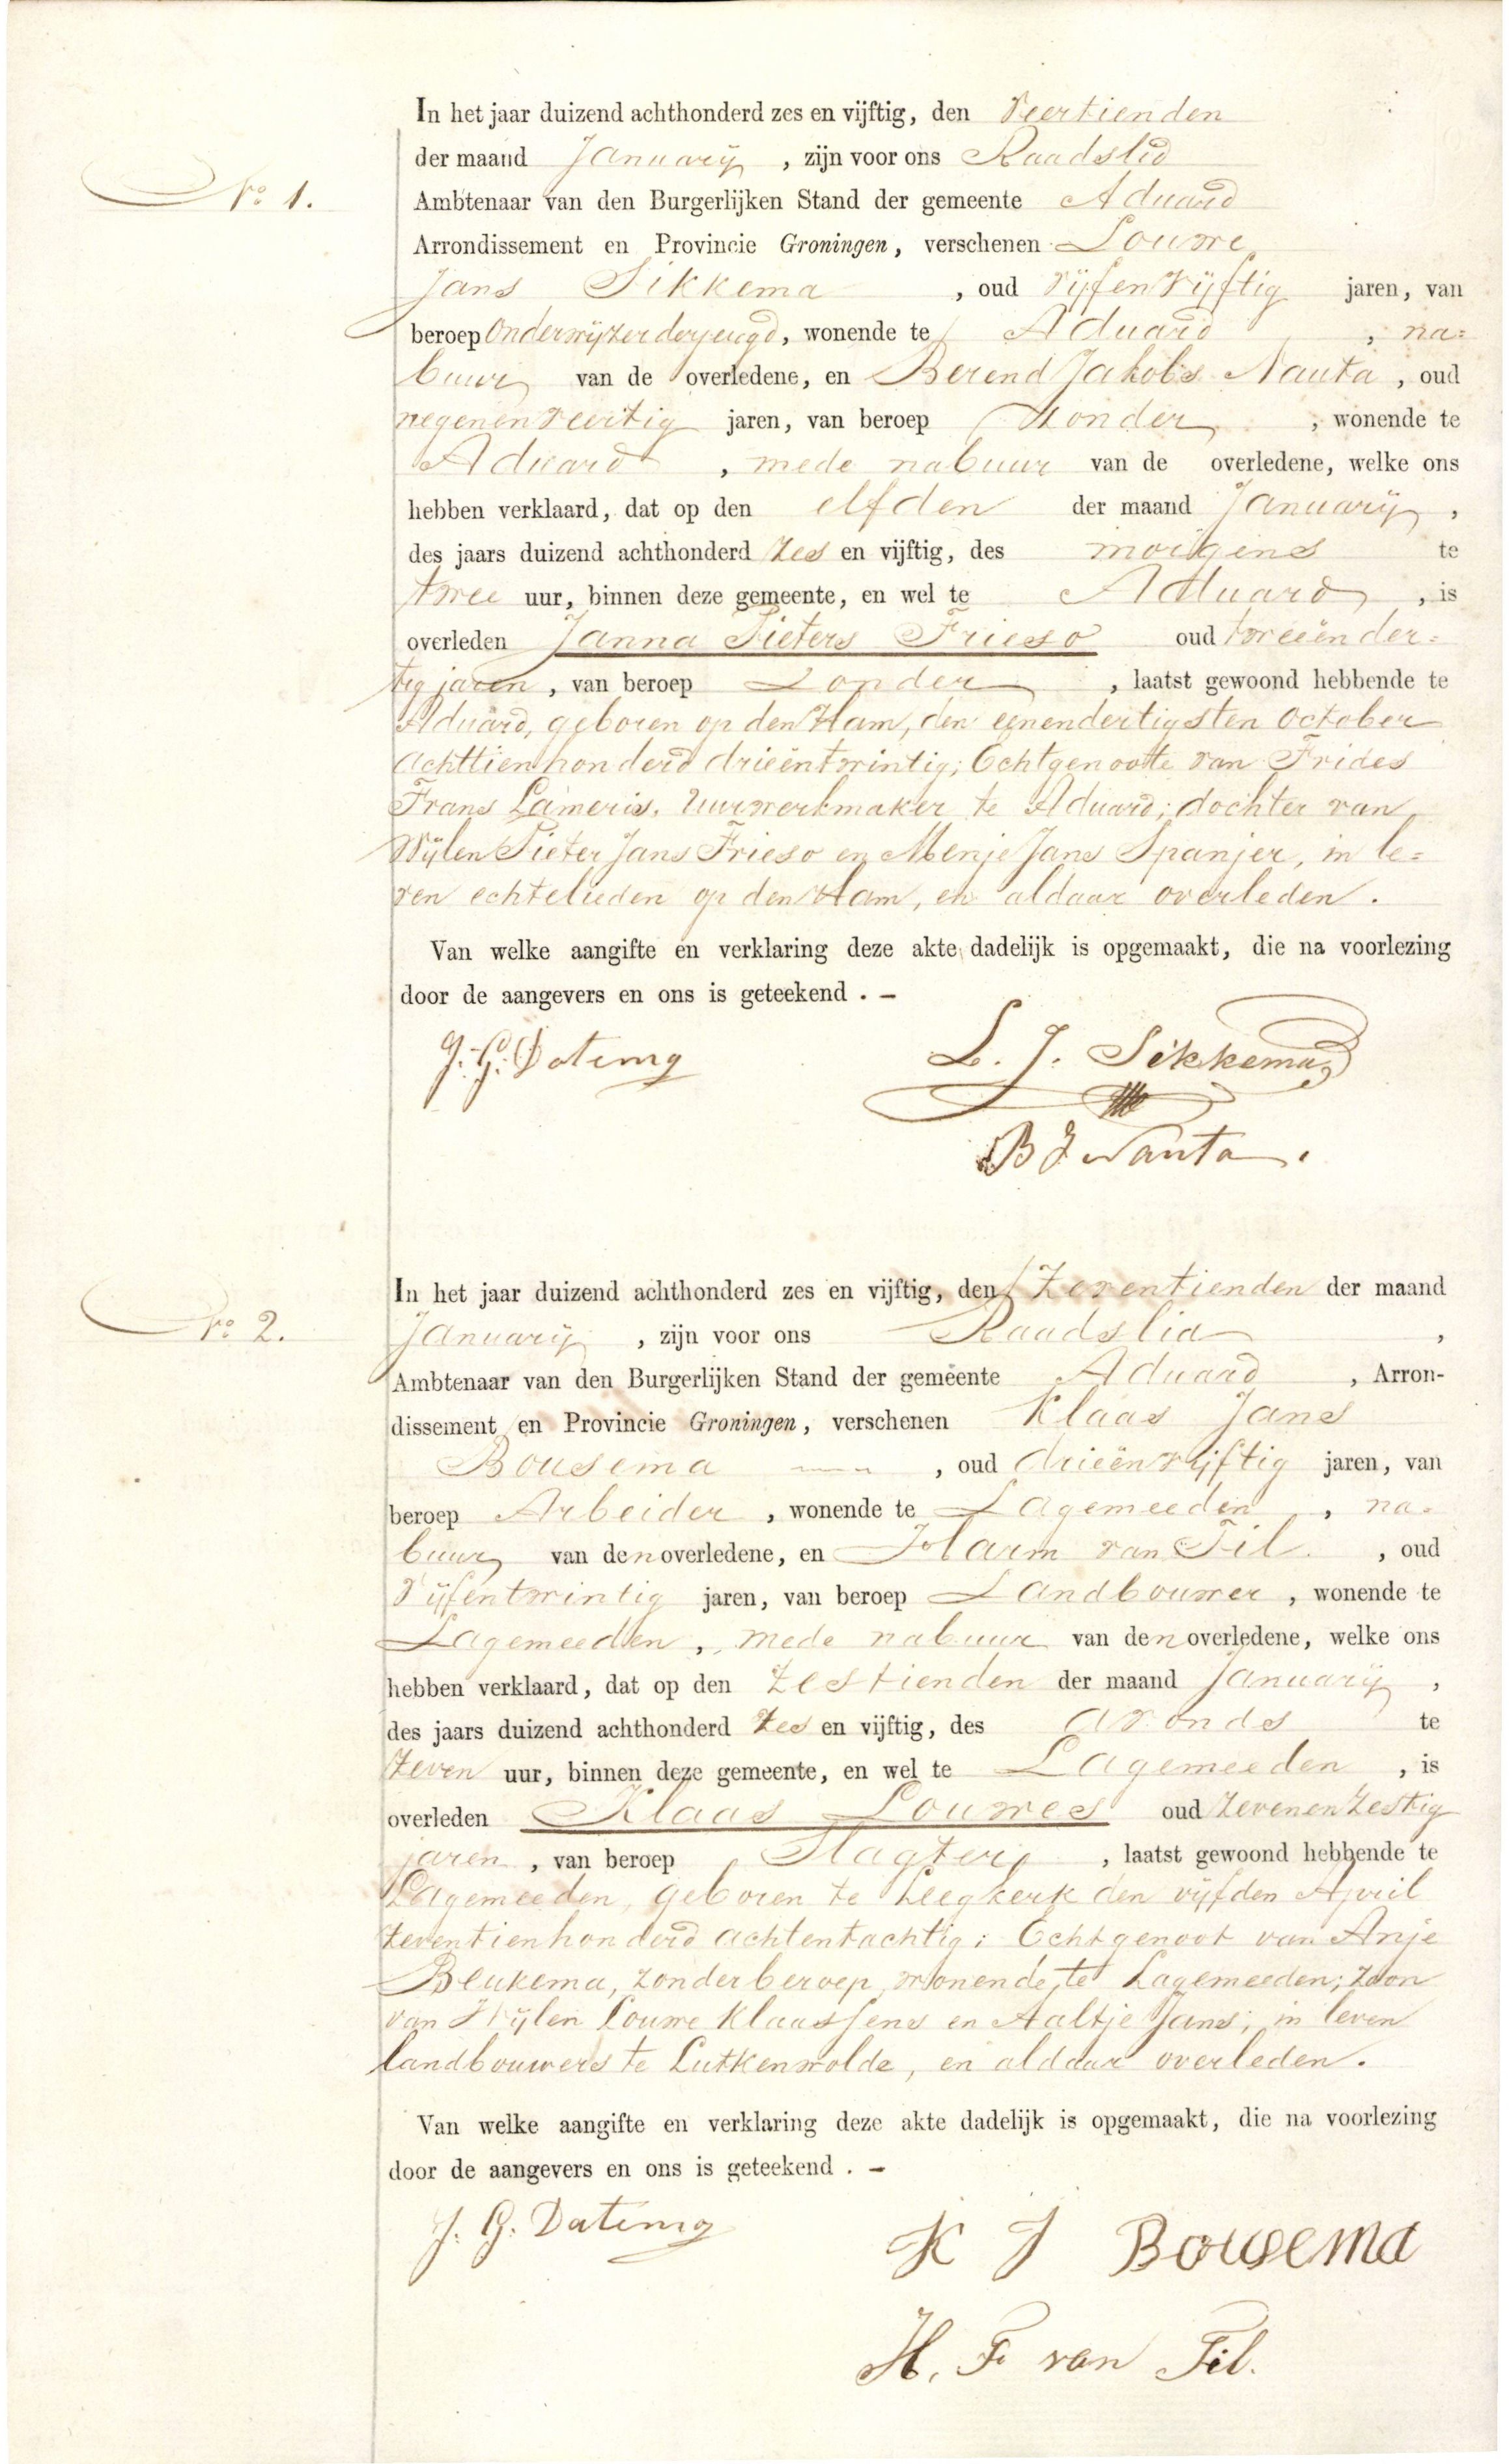 In het jaar duizend achthonderd zes en vijftig, den Veertienden
der maand January, zijn voor ons Raadslid
No 1.
Ambtenaar van den Burgerlijken Stand der gemeente Aduard
Arrondissement en Provincie Groningen, verschenen Louwe
Jans Sikkema, oud Vijfenvijftig jaren, van
beroep Onderwijzer der jeugd, wonende te Aduard, na=
buur van de overledene, en Berend Jakobs Nauta, oud
negenenveertig jaren, van beroep Zonder, wonende te
Aduard, mede nabuur van de overledene, welke ons
hebben verklaard, dat op den elfden der maand January,
des jaars duizend achthonderd zes en vijftig, des morgens te
twee uur, binnen deze gemeente, en wel te Aduard, is
overleden Janna Pieters Frieso oud tweeënder=
tig jaren, van beroep Zonder, laatst gewoond hebbende te
Aduard, geboren op den Ham, den eenendertigsten October
achttienhonderd drieëntwintig; Echtgenoote van Frides
Frans Lameris, Uurwerkmaker te Aduard; dochter van
Wijlen Pieter Jans Frieso en Menje Jans Spanjer, in le=
ven echtelieden op den Ham, en aldaar overleden.
Van welke aangifte en verklaring deze akte dadelijk is opgemaakt, die na voorlezing
door de aangevers en ons is geteekend. —
J. G. Datema L. J. Sikkema
B J Nauta.
In het jaar duizend achthonderd zes en vijftig, den Zeventienden der maand
No 2.
January, zijn voor ons Raadslid,
Ambtenaar van den Burgerlijken Stand der gemeente Aduard, Arron-
dissement en Provincie Groningen, verschenen Klaas Jans
Bousema, oud drieënvijftig jaren, van
beroep Arbeider, wonende te Lagemeeden, na=
buur van den overledene, en Harm van Til, oud
Vijfentwintig jaren, van beroep Landbouwer, wonende te
Lagemeeden, mede nabuur van den overledene, welke ons
hebben verklaard, dat op den zestienden der maand January,
des jaars duizend achthonderd zes en vijftig, des avonds te
zeven uur, binnen deze gemeente, en wel te Lagemeeden, is
overleden Klaas Louwes oud zevenenzestig
jaren, van beroep Slagter, laatst gewoond hebbende te
Lagemeeden, geboren te Leegkerk den vijfden April
zeventienhonderd achtentachtig; Echtgenoot van Anje
Beukema, zonder beroep, wonende te Lagemeeden; zoon
van Wijlen Louwe Klaassens en Aaltje Jans; in leven
landbouwers te Lutkenwolde, en aldaar overleden.
Van welke aangifte en verklaring deze akte dadelijk is opgemaakt, die na voorlezing
door de aangevers en ons is geteekend. —
J. G. Datema K J Bousema
H. F. van Til.